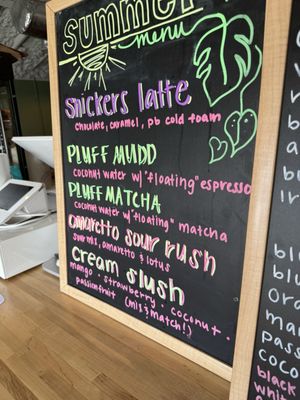 summer
menu
Snickers latte
chocolate, caramel, pb cold foam
PLUFF MUDD
coconut water w/ "floating" espresso
PLUFF MATCHA
coconut water w/ "floating" matcha
amaretto sour rush
sour mix, amaretto & lotus
cream slush
mango · strawberry · coconut ·
passionfruit (mix & match!)
mat
passi
coco
black
whit